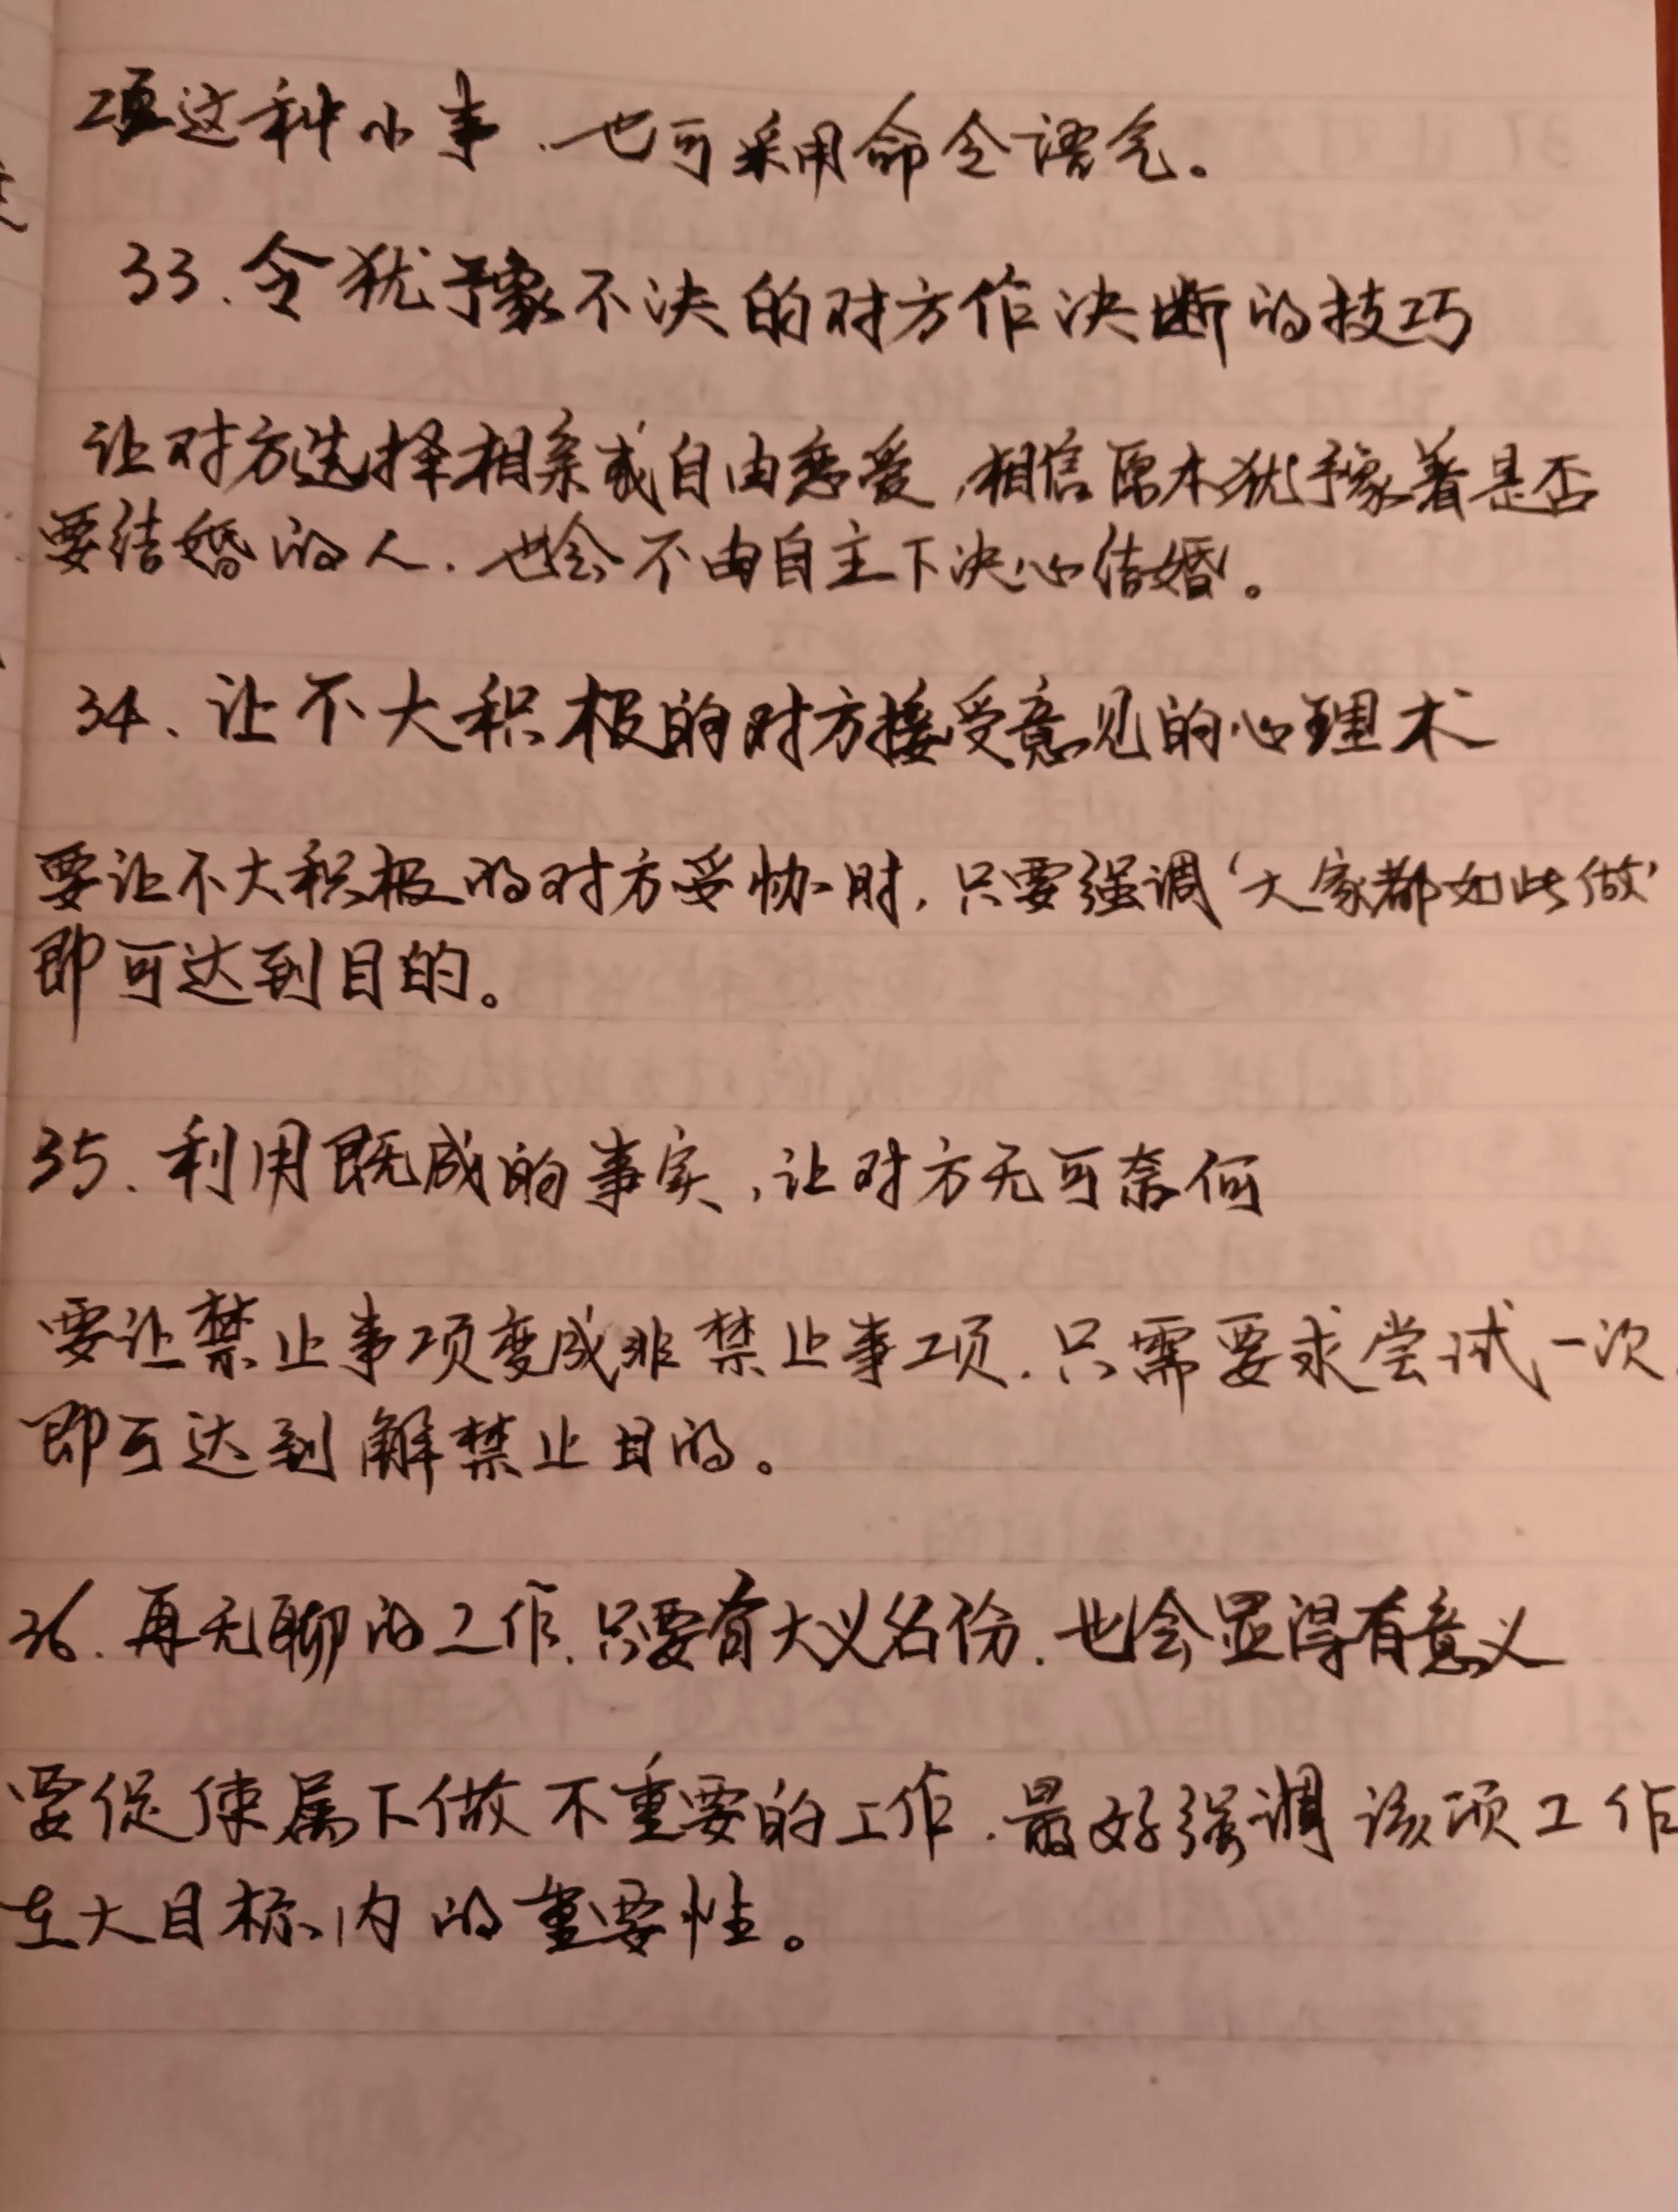 项这种小事.也可采用命令语气。
33.令犹予豫不决的对方作决断的技巧
让对方选择相亲或自由恋爱,相信原本犹予豫着是否
要结婚的人.也会不由自主下决心结婚。
34、让不大积极的对方接受意见的心理术
要让不大积极的对方妥协时,只要强调‘大家都如此做’
即可达到目的。
35.利用既成的事实,让对方无可奈何
要让禁止事项变成非禁止事项.只需要求尝试一次.
即可达到解禁止目的。
36.再无聊的工作.只要有大义名份.也会显得有意义
要促使属下做不重要的工作.最好强调该项工作
在大目标内的重要性。